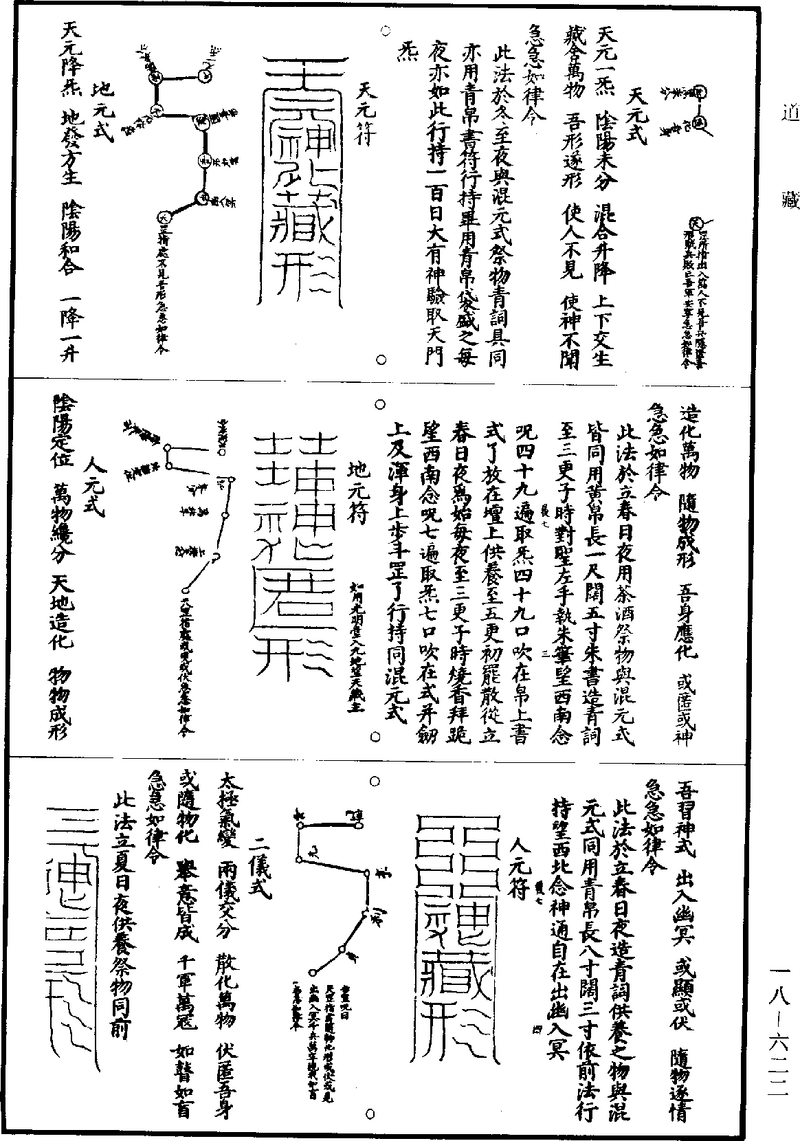 道藏
一八—六二二
天元式
天元一炁　陰陽未分　混合升降　上下交生
藏舍萬物　吾形遂形　使人不見　使神不聞
急急如律令
此法於冬至夜與混元式祭物青詞具同
亦用青帛書符行持畢用青帛袋盛之每
夜亦如此行持一百日大有神驗取天門
炁
天元符
地元式
天元降炁　地發方生　陰陽和合　一降一升
造化萬物　隨物成形　吾身應化　或匿或神
急急如律令
此法於立春日夜用茶酒祭物與混元式
皆同用黃帛長一尺闊五寸朱書造青詞
至三更子時對聖左手執朱筆望西南念
呪四十九遍取炁四十九口吹在帛上書
式了放在壇上供養至五更初罷散從立
春日夜爲始每夜至三更子時燒香拜跪
望西南念呪七遍取炁七口吹在式并劒
上及渾身上步斗罡了行持同混元式
地元符
人元式
陰陽定位　萬物纔分　天地造化　物物成形
吾習神式　出入幽冥　或顯或伏　隨物遂情
急急如律令
此法於立春日夜造青詞供養之物與混
元式同用青帛長八寸闊三寸依前法行
持望西北念神通自在出幽入冥
人元符
二儀式
太極氣變　兩儀交分　散化萬物　伏匿吾身
或隨物化　舉意皆成　千軍萬寇　如瞽如盲
急急如律令
此法立夏日夜供養祭物同前